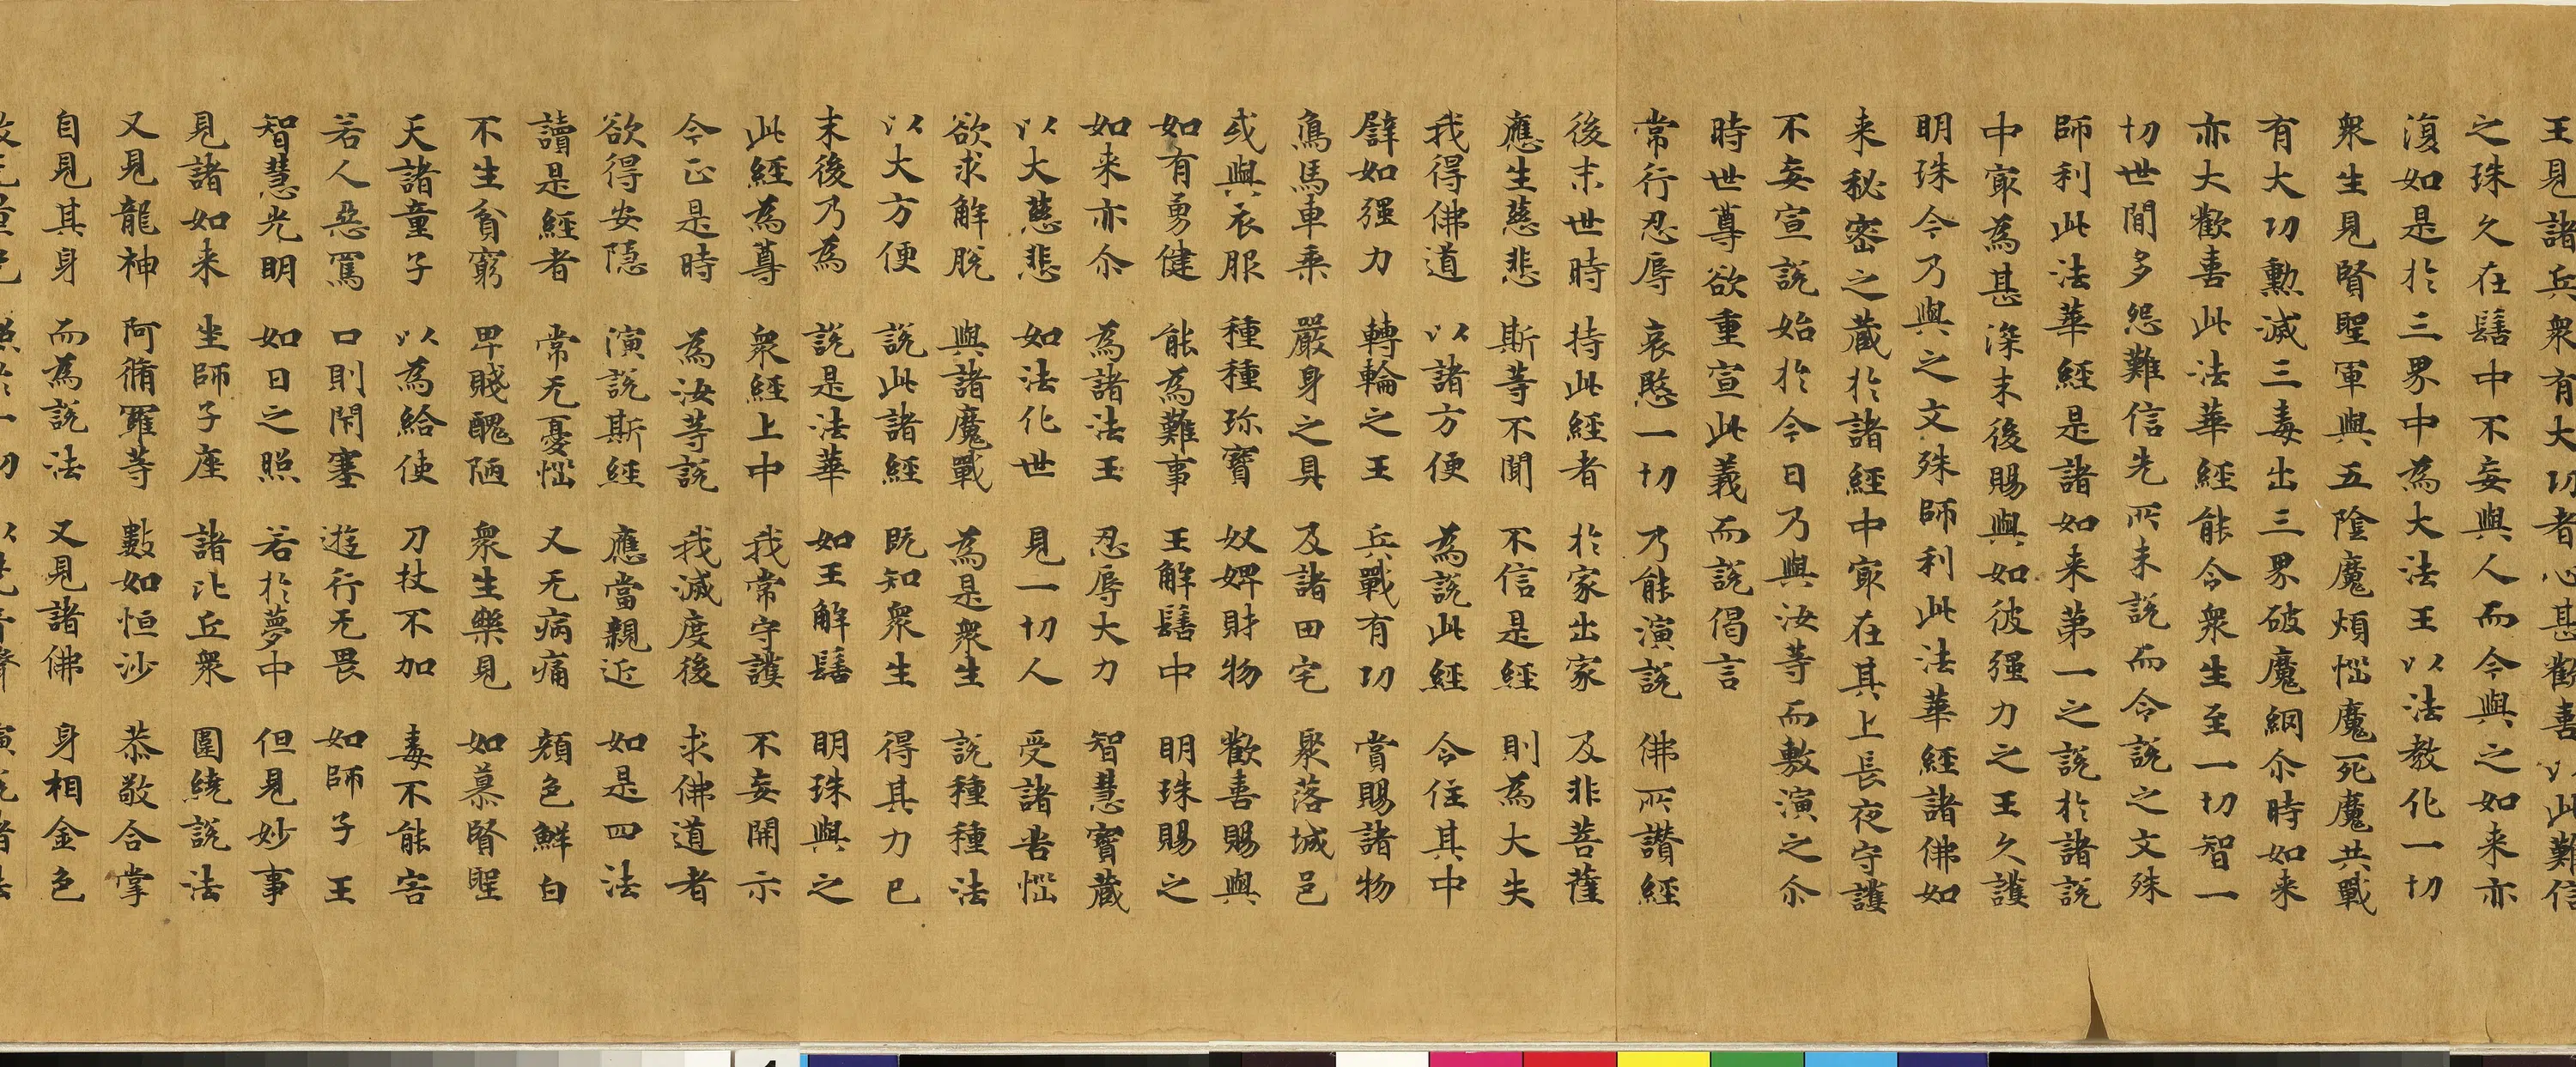 王見諸兵衆有大功者心甚歡喜以此難信
之珠久在髻中不妄與人而今與之如来亦
復如是於三界中為大法王以法教化一切
衆生見賢聖軍與五陰魔煩惱魔死魔共戰
有大功勲滅三毒出三界破魔網尒時如来
亦大歡喜此法華經能令衆生至一切智一
切世間多怨難信先所未說而今說之文殊
師利此法華經是諸如来第一之說於諸說
中寂為甚深末後賜與如彼强力之王久護
明珠今乃與之文殊師利此法華經諸佛如
来秘密之藏於諸經中寂在其上長夜守護
不妄宣說始於今日乃與汝等而敷演之尒
時世尊欲重宣此義而說偈言
常行忍辱 哀愍一切 乃能演說 佛所讃經
後末世時 持此經者 於家出家 及非菩薩
應生慈悲 斯等不聞 不信是經 則為大失
我得佛道 以諸方便 為說此經 令住其中
譬如强力 轉輪之王 兵戰有功 賞賜諸物
鳥馬車乘 嚴身之具 及諸田宅 聚落城邑
或與衣服 種種珎寶 奴婢財物 歡喜賜與
如有勇健 能為難事 王解髻中 明珠賜之
如来亦尒 為諸法王 忍辱大力 智慧寶藏
以大慈悲 如法化世 見一切人 受諸苦惱
欲求解脫 與諸魔戰 為是衆生 說種種法
以大方便 說此諸經 既知衆生 得其力已
末後乃為 說是法華 如王解髻 明珠與之
此經為尊 衆經上中 我常守護 不妄開示
今正是時 為汝等說 我滅度後 求佛道者
欲得安隱 演說斯經 應當親近 如是四法
讀是經者 常无憂惱 又无病痛 顔色鮮白
不生貧窮 卑賤醜陋 衆生樂見 如慕賢聖
天諸童子 以為給使 刀杖不加 毒不能害
若人惡罵 口則閇塞 遊行无畏 如師子王
智慧光明 如日之照 若於夢中 但見妙事
見諸如来 坐師子座 諸比丘衆 圍繞說法
又見龍神 阿脩羅等 數如恒沙 恭敬合掌
自見其身 而為說法 又見諸佛 身相金色